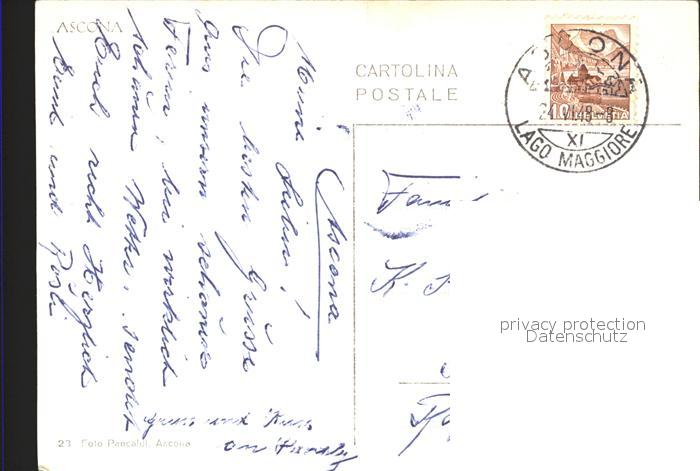 ASCONA
CARTOLINA
POSTALE
ASCONA
24.VI.48-8
XI
LAGO MAGGIORE
HELVETIA
10
Ascona
Meine Lieben!
Die besten Grüsse
aus unsern schönen
Ferien, bei wirklich
schönem Wetter, sendet
Euch recht herzlich
Emil und Rosli
Gruss und Kuss
an
Fami
K.
privacy protection
Datenschutz
23 Foto Pancaldi, Ascona